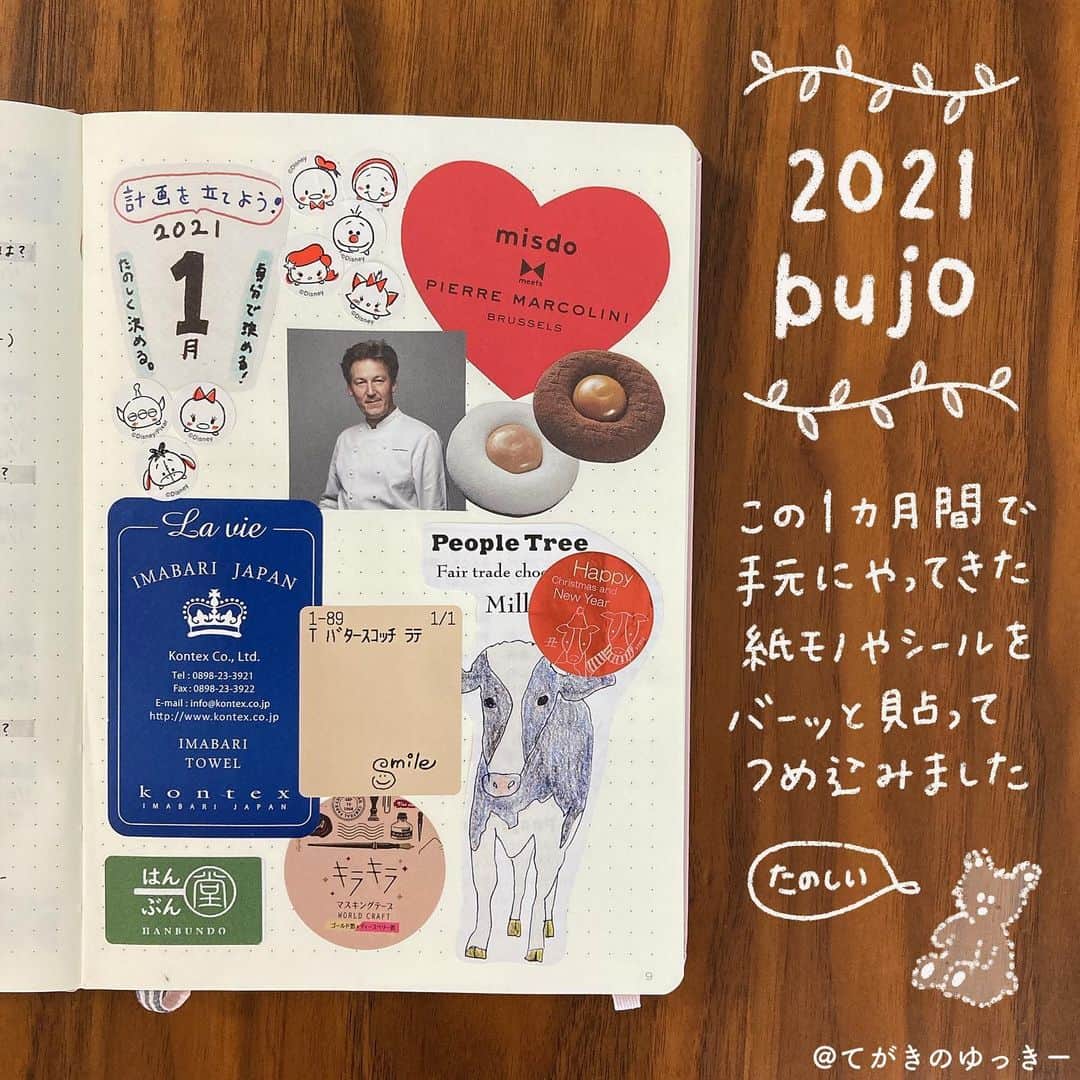 計画を立てよう!
2021
1
月
たのしく決める。
自分で決める!
©Disney
©Disney
©Disney
©Disney
©Disney/Pixar
©Disney
©Disney
misdo
meets
PIERRE MARCOLINI
BRUSSELS
La vie
IMABARI JAPAN
Kontex Co., Ltd.
Tel : 0898-23-3921
Fax : 0898-23-3922
E-mail : info@kontex.co.jp
http://www.kontex.co.jp
IMABARI
TOWEL
kontex
IMABARI JAPAN
People Tree
Fair trade choc
Mill
Happy
Christmas and
New Year
丑
1-89 1/1
T バタースコッチ ラテ
Smile
キラキラ
マスキングテープ
WORLD CRAFT
はん
ぶん
堂
HANBUNDO
9
2021
bujo
この1カ月間で
手元にやってきた
紙モノやシールを
バーッと貼って
つめ込みました
たのしい
@てがきのゆっきー